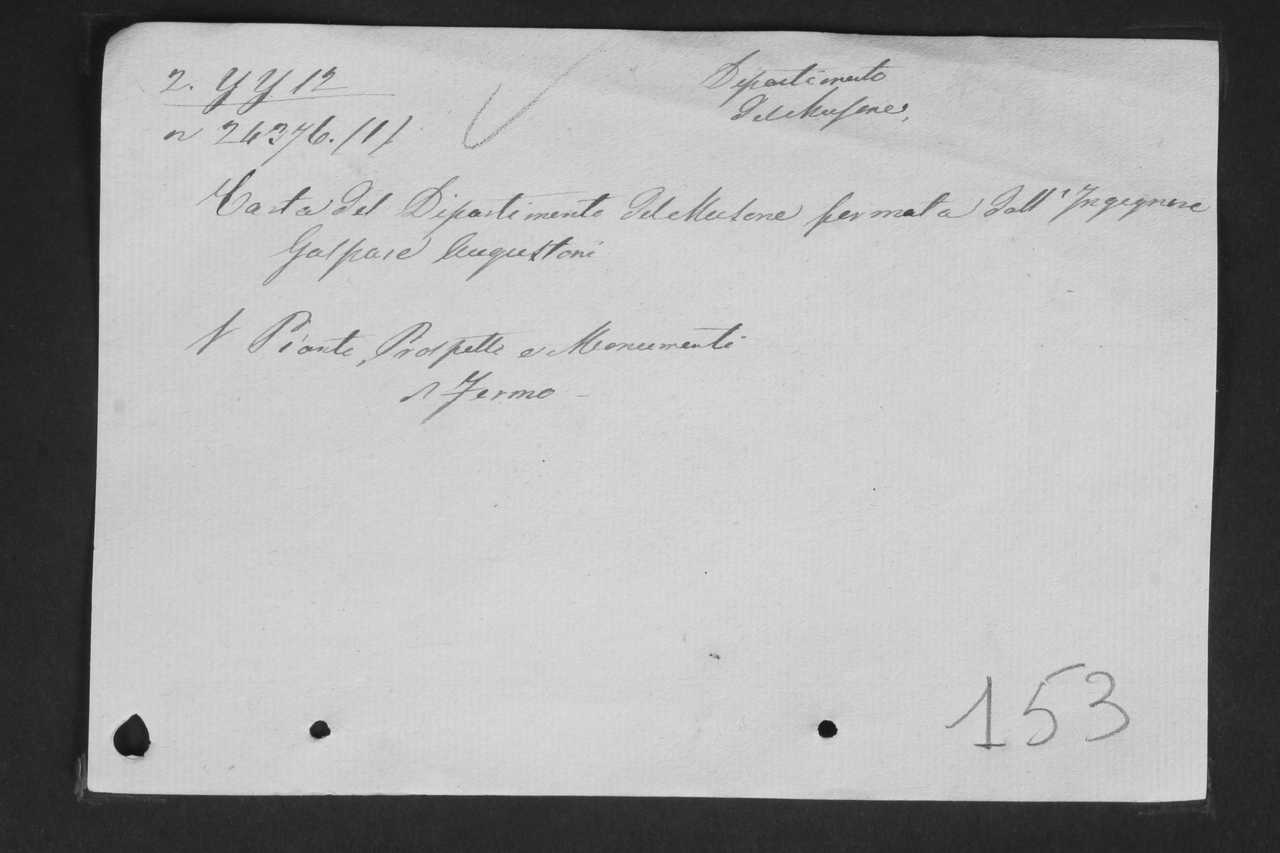 2. YY 12
n 24376.(1)
Dipartimento
del Musone,
Carta del Dipartimento del Musone fermata dall'Ingegnere
Gaspare Augustoni
V Piante, Prospetti e Monumenti
Fermo -
153